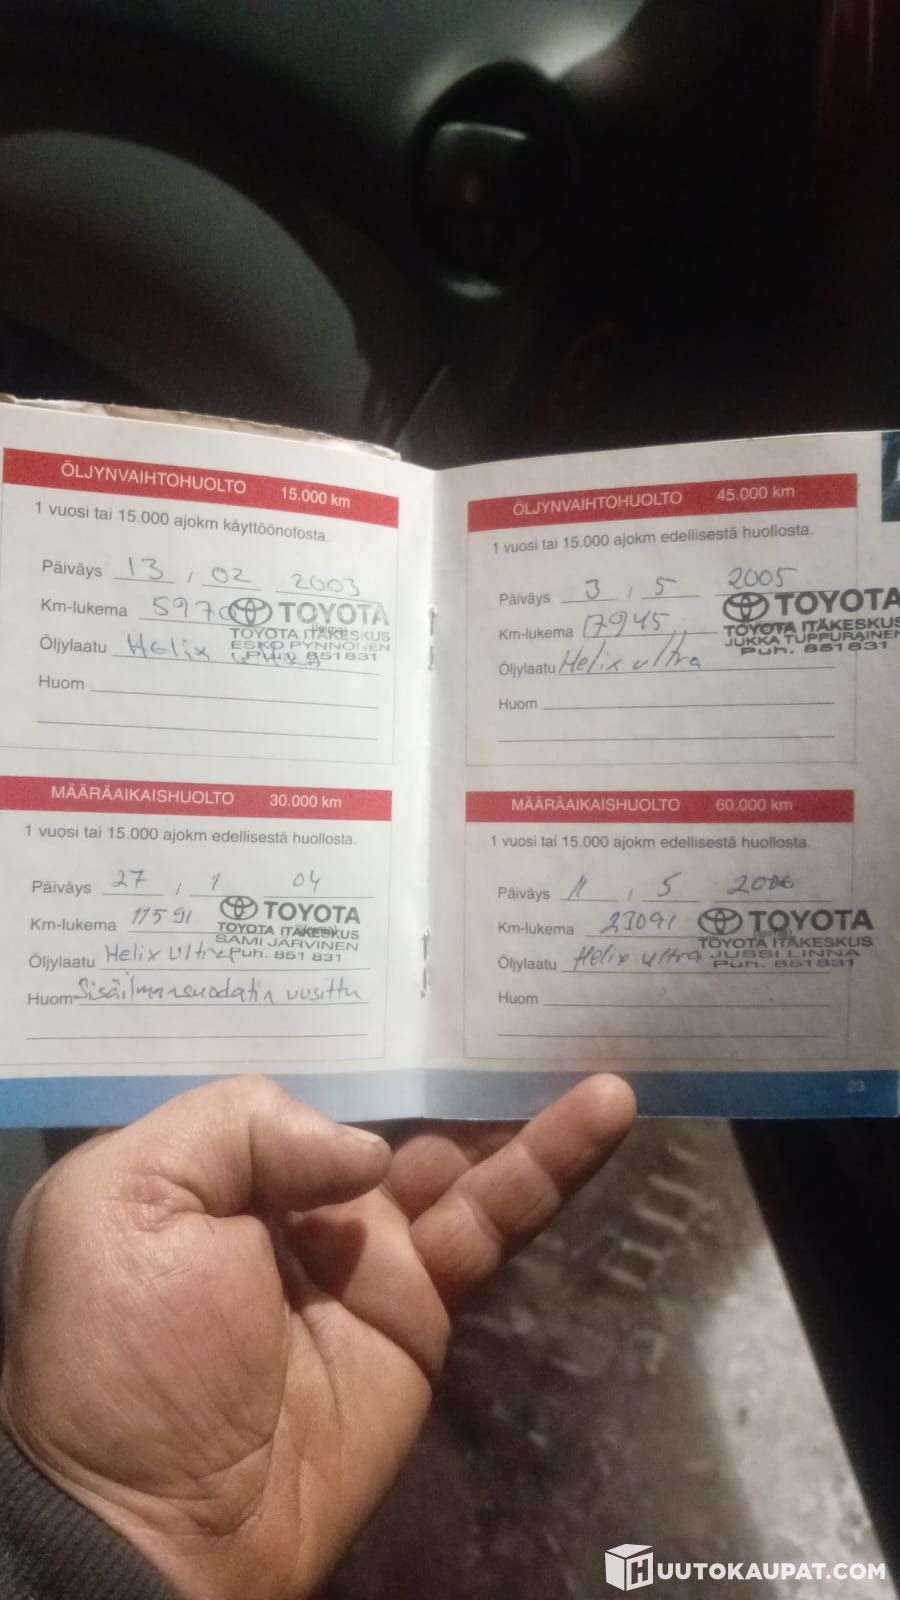 ÖLJYNVAIHTOHUOLTO 15.000 km
1 vuosi tai 15.000 ajokm käyttöönotosta.
Päiväys 13 / 02 2003
Km-lukema 5970
TOYOTA
TOYOTA ITÄKESKUS
ESKO PYNNÖNEN
Puh. 851831
Öljylaatu Helix ultra
Huom
MÄÄRÄAIKAISHUOLTO 30.000 km
1 vuosi tai 15.000 ajokm edellisestä huollosta.
Päiväys 27 / 1 04
Km-lukema 11591
TOYOTA
TOYOTA ITÄKESKUS
SAMI JÄRVINEN
Puh. 851 831
Öljylaatu Helix Ultra
Huom Sisäilmansuodatin uusittu
ÖLJYNVAIHTOHUOLTO 45.000 km
1 vuosi tai 15.000 ajokm edellisestä huollosta.
Päiväys 3 / 5 2005
Km-lukema 17945
TOYOTA
TOYOTA ITÄKESKUS
JUKKA TUPPURAINEN
Puh. 851831
Öljylaatu Helix ultra
Huom
MÄÄRÄAIKAISHUOLTO 60.000 km
1 vuosi tai 15.000 ajokm edellisestä huollosta.
Päiväys 11 / 5 2006
Km-lukema 23091
TOYOTA
TOYOTA ITÄKESKUS
JUSSI LINNA
Puh. 851831
Öljylaatu Helix ultra
Huom
23
HUUTOKAUPAT.COM